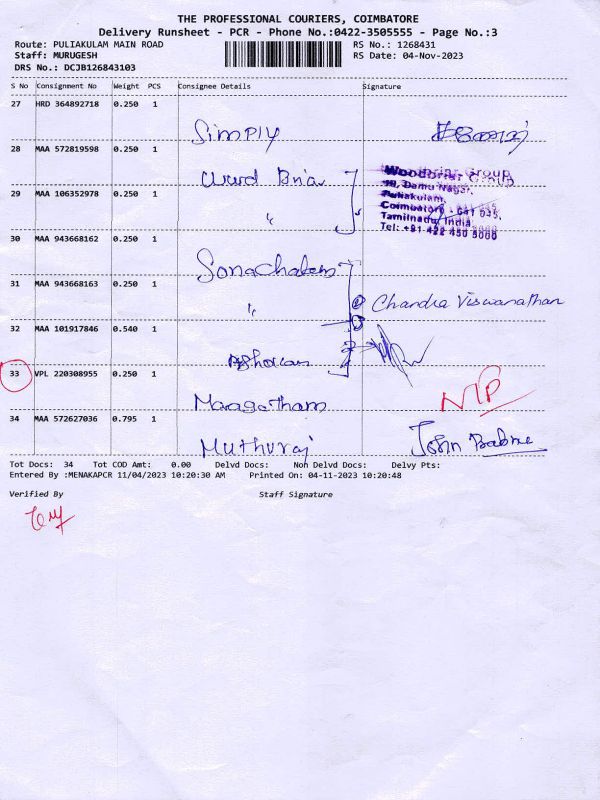 THE PROFESSIONAL COURIERS, COIMBATORE
Delivery Runsheet - PCR - Phone No.:0422-3505555 - Page No.:3
Route: PULIAKULAM MAIN ROAD RS No.: 1268431
Staff: MURUGESH RS Date: 04-Nov-2023
DRS No.: DCJB126843103
S No Consignment No Weight PCS Consignee Details Signature
27 HRD 364892718 0.250 1
Simply
28 MAA 572819598 0.250 1
Woodbriar Group
29 MAA 106352978 0.250 1
"
10, Damu Nagar,
Puliakulam,
Coimbatore - 641 045,
Tamilnadu, India.
Tel: +91 422 450 5000
30 MAA 943668162 0.250 1
31 MAA 943668163 0.250 1
"
Chandra Viswanathan
32 MAA 101917846 0.540 1
33 VPL 220308955 0.250 1
Maagatham
34 MAA 572627036 0.795 1
Muthuraj
John
Tot Docs: 34 Tot COD Amt: 0.00 Delvd Docs: Non Delvd Docs: Delvy Pts:
Entered By :MENAKAPCR 11/04/2023 10:20:30 AM Printed On: 04-11-2023 10:20:48
Verified By Staff Signature